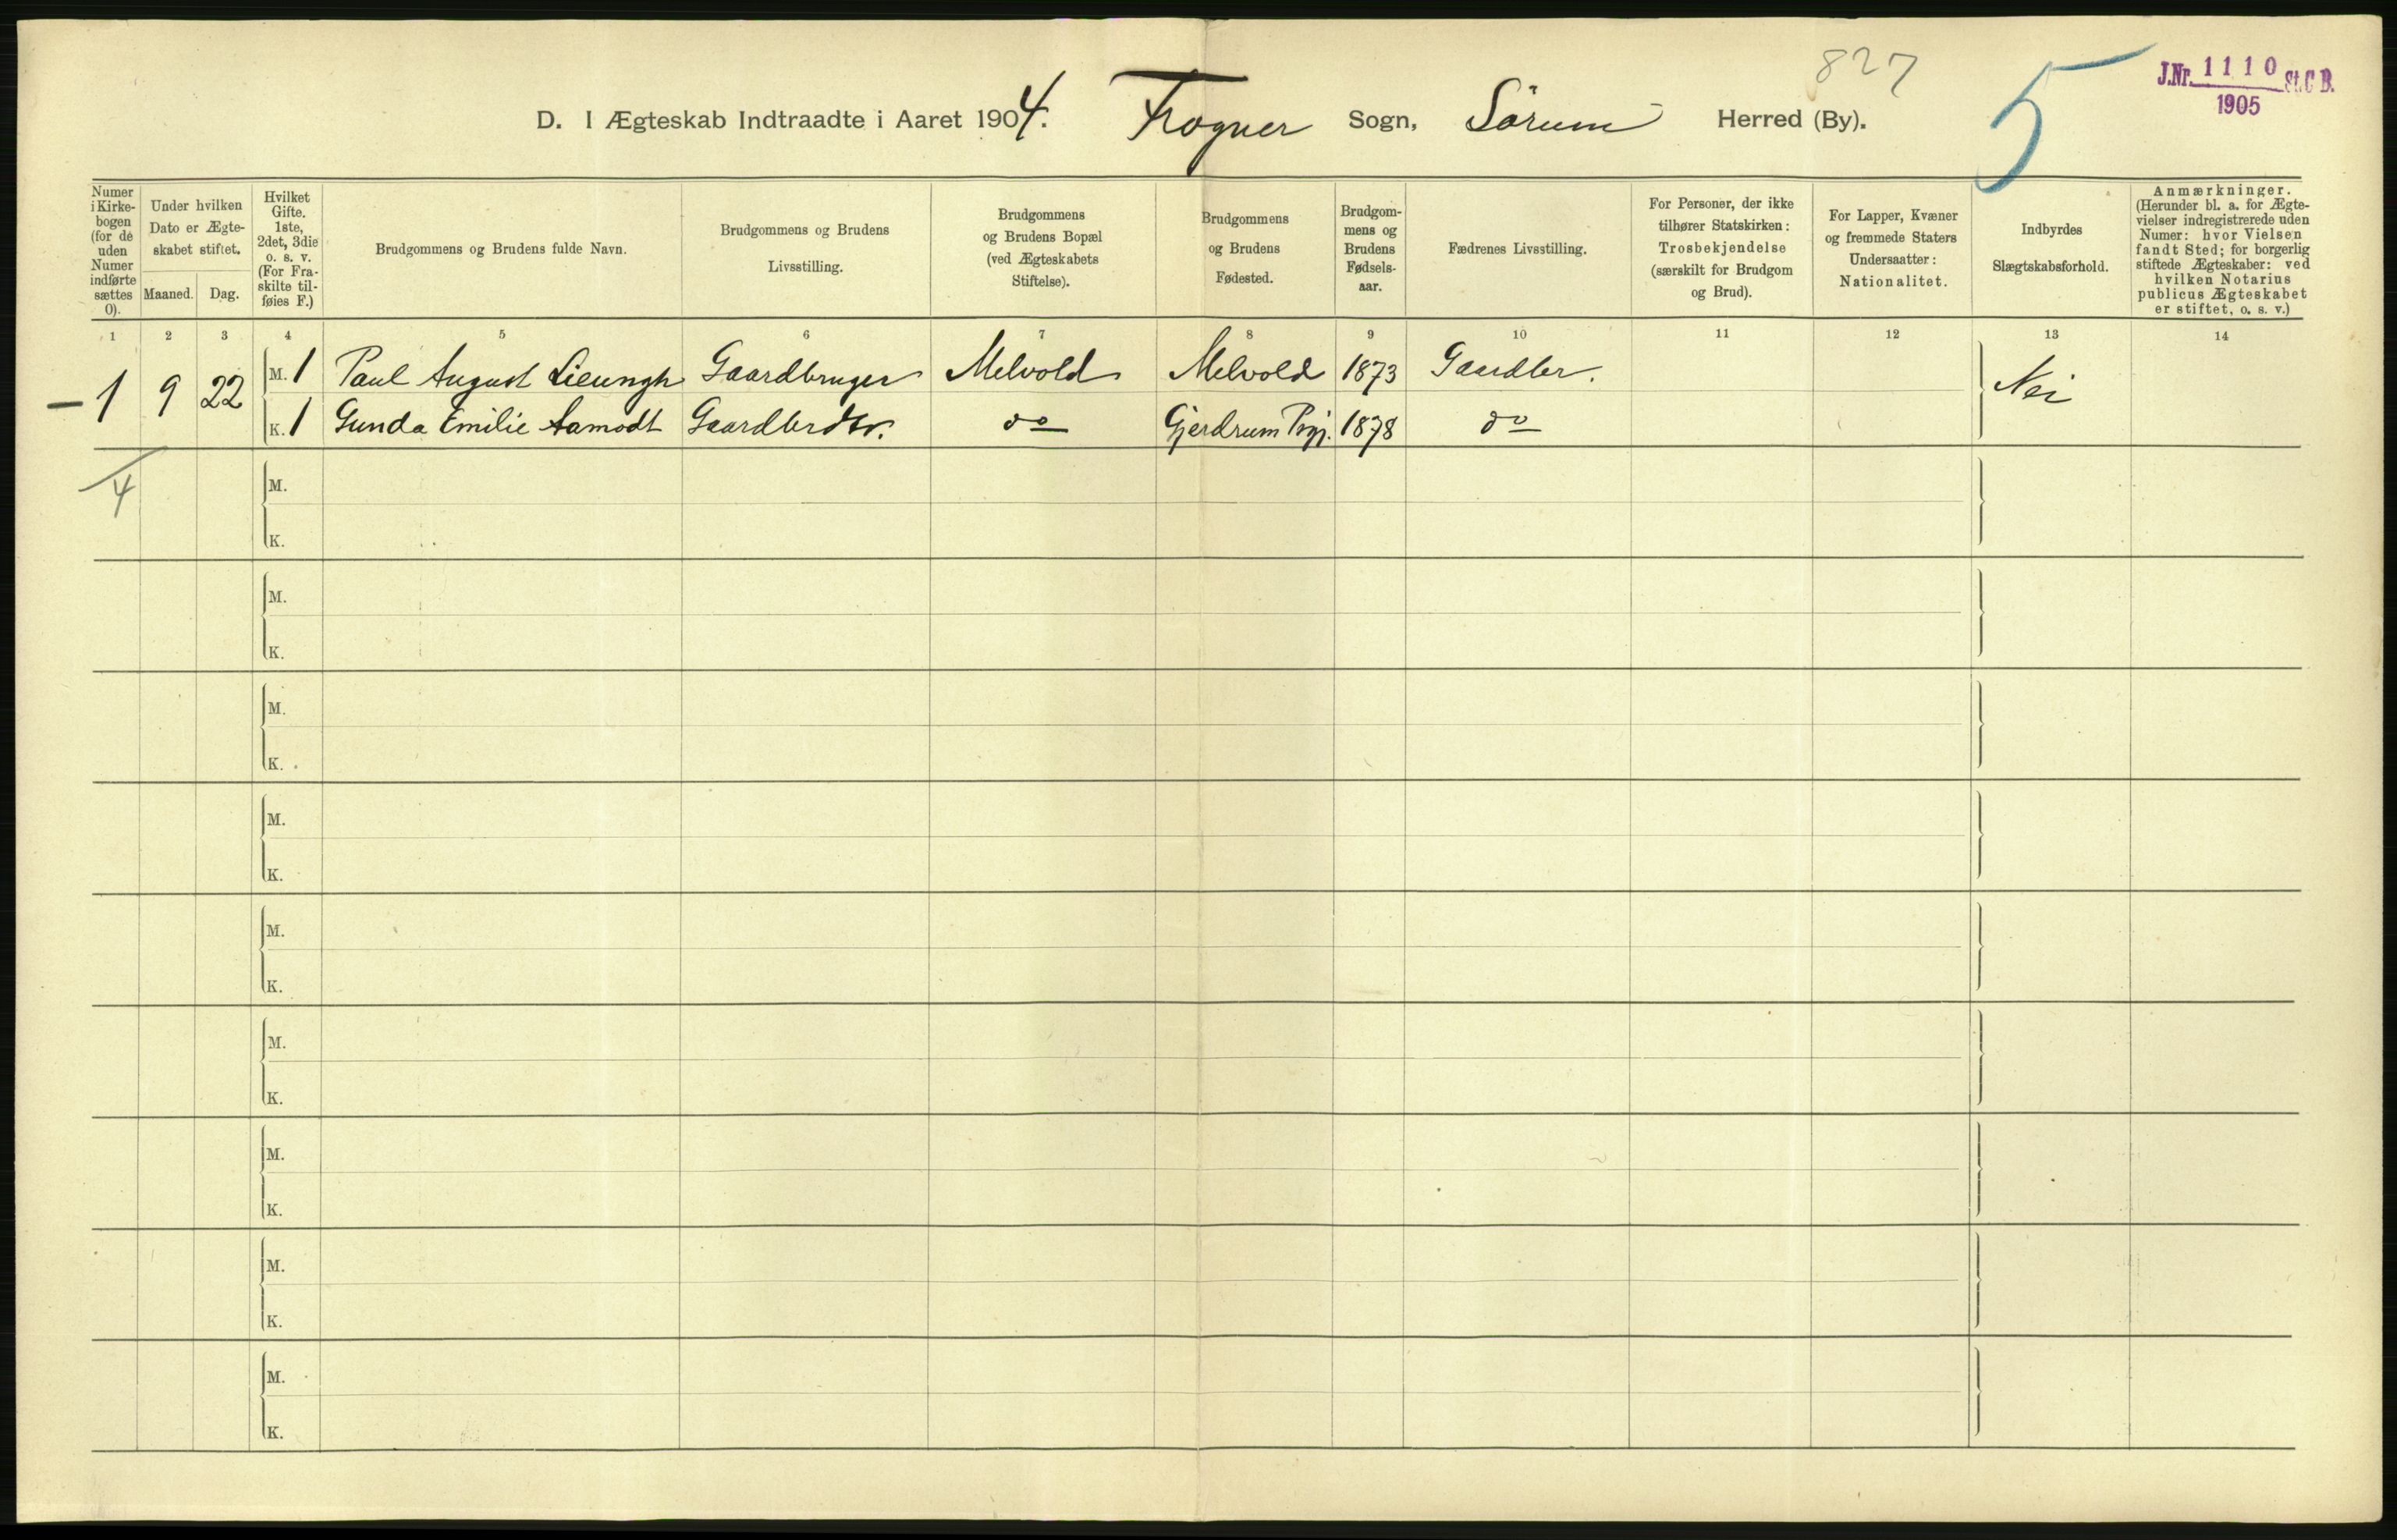 827
5
J.Nr. 1110 St.C.B.
1905
D. I Ægteskab Indtraadte i Aaret 1904. Frogner Sogn, Sörum Herred (By).
Numer i Kirkebogen (for de uden Numer indførte sættes 0).
Under hvilken Dato er Ægteskabet stiftet.
Maaned. Dag.
Hvilket Gifte. 1ste, 2det, 3die o. s. v. (For Fraskilte tilføies F.)
Brudgommens og Brudens fulde Navn.
Brudgommens og Brudens Livsstilling.
Brudgommens og Brudens Bopæl (ved Ægteskabets Stiftelse).
Brudgommens og Brudens Fødested.
Brudgommens og Brudens Fødselsaar.
Fædrenes Livsstilling.
For Personer, der ikke tilhører Statskirken: Trosbekjendelse (særskilt for Brudgom og Brud).
For Lapper, Kvæner og fremmede Staters Undersaatter: Nationalitet.
Indbyrdes Slægtskabsforhold.
Anmærkninger. (Herunder bl. a. for Ægtevielser indregistrerede uden Numer: hvor Vielsen fandt Sted; for borgerlig stiftede Ægteskaber: ved hvilken Notarius publicus Ægteskabet er stiftet, o. s. v.)
1 2 3 4 5 6 7 8 9 10 11 12 13 14
1 9 22 M. 1 Paul August Lieungh Gaardbruger Melvold Melvold 1873 Gaardbr. Nei
K. 1 Gunda Emilie Aamodt Gaardbrdtr. do Gjerdrum Prgj. 1878 do
4 M.
K.
M.
K.
M.
K.
M.
K.
M.
K.
M.
K.
M.
K.
M.
K.
M.
K.